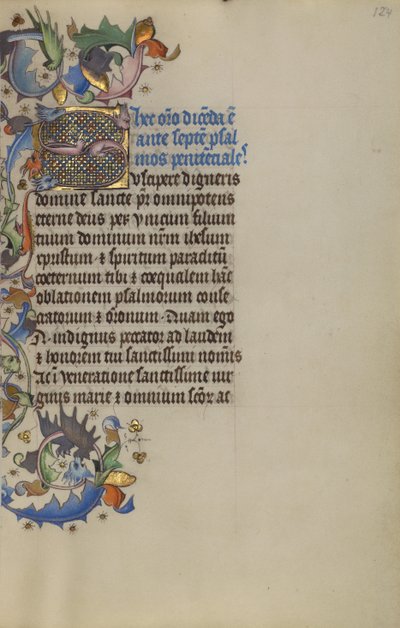 124
hec oro dicēda ē
ante septē psal
mos penitēciales
Suscipere digneris
domine sancte pr omnipotens
eterne deus per vnicum filium
tuum dominum nrm ihesum
cpristum · & spiritum paraditū
coeternum tibi & coequalem hāc
oblationem psalmorum conse
cratorum & oronum · Quam ego
N · indignus peccator ad laudem
& honorem tui sanctissimi nomīs
& ī veneratione sanctissime vir
ginis marie & omnium scōr ac